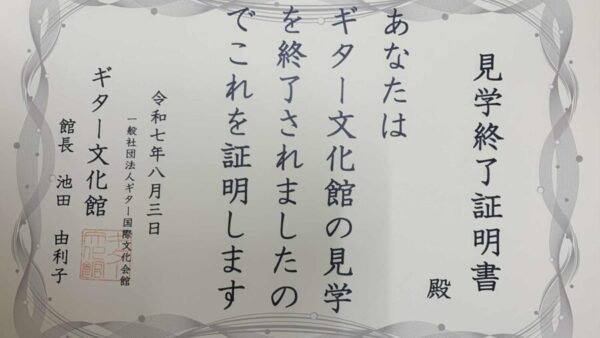 見学終了証明書
殿
あなたは
ギター文化館の見学
を終了されましたの
でこれを証明します
令和七年八月三日
一般社団法人ギター国際文化会館
ギター文化館
館長 池田 由利子